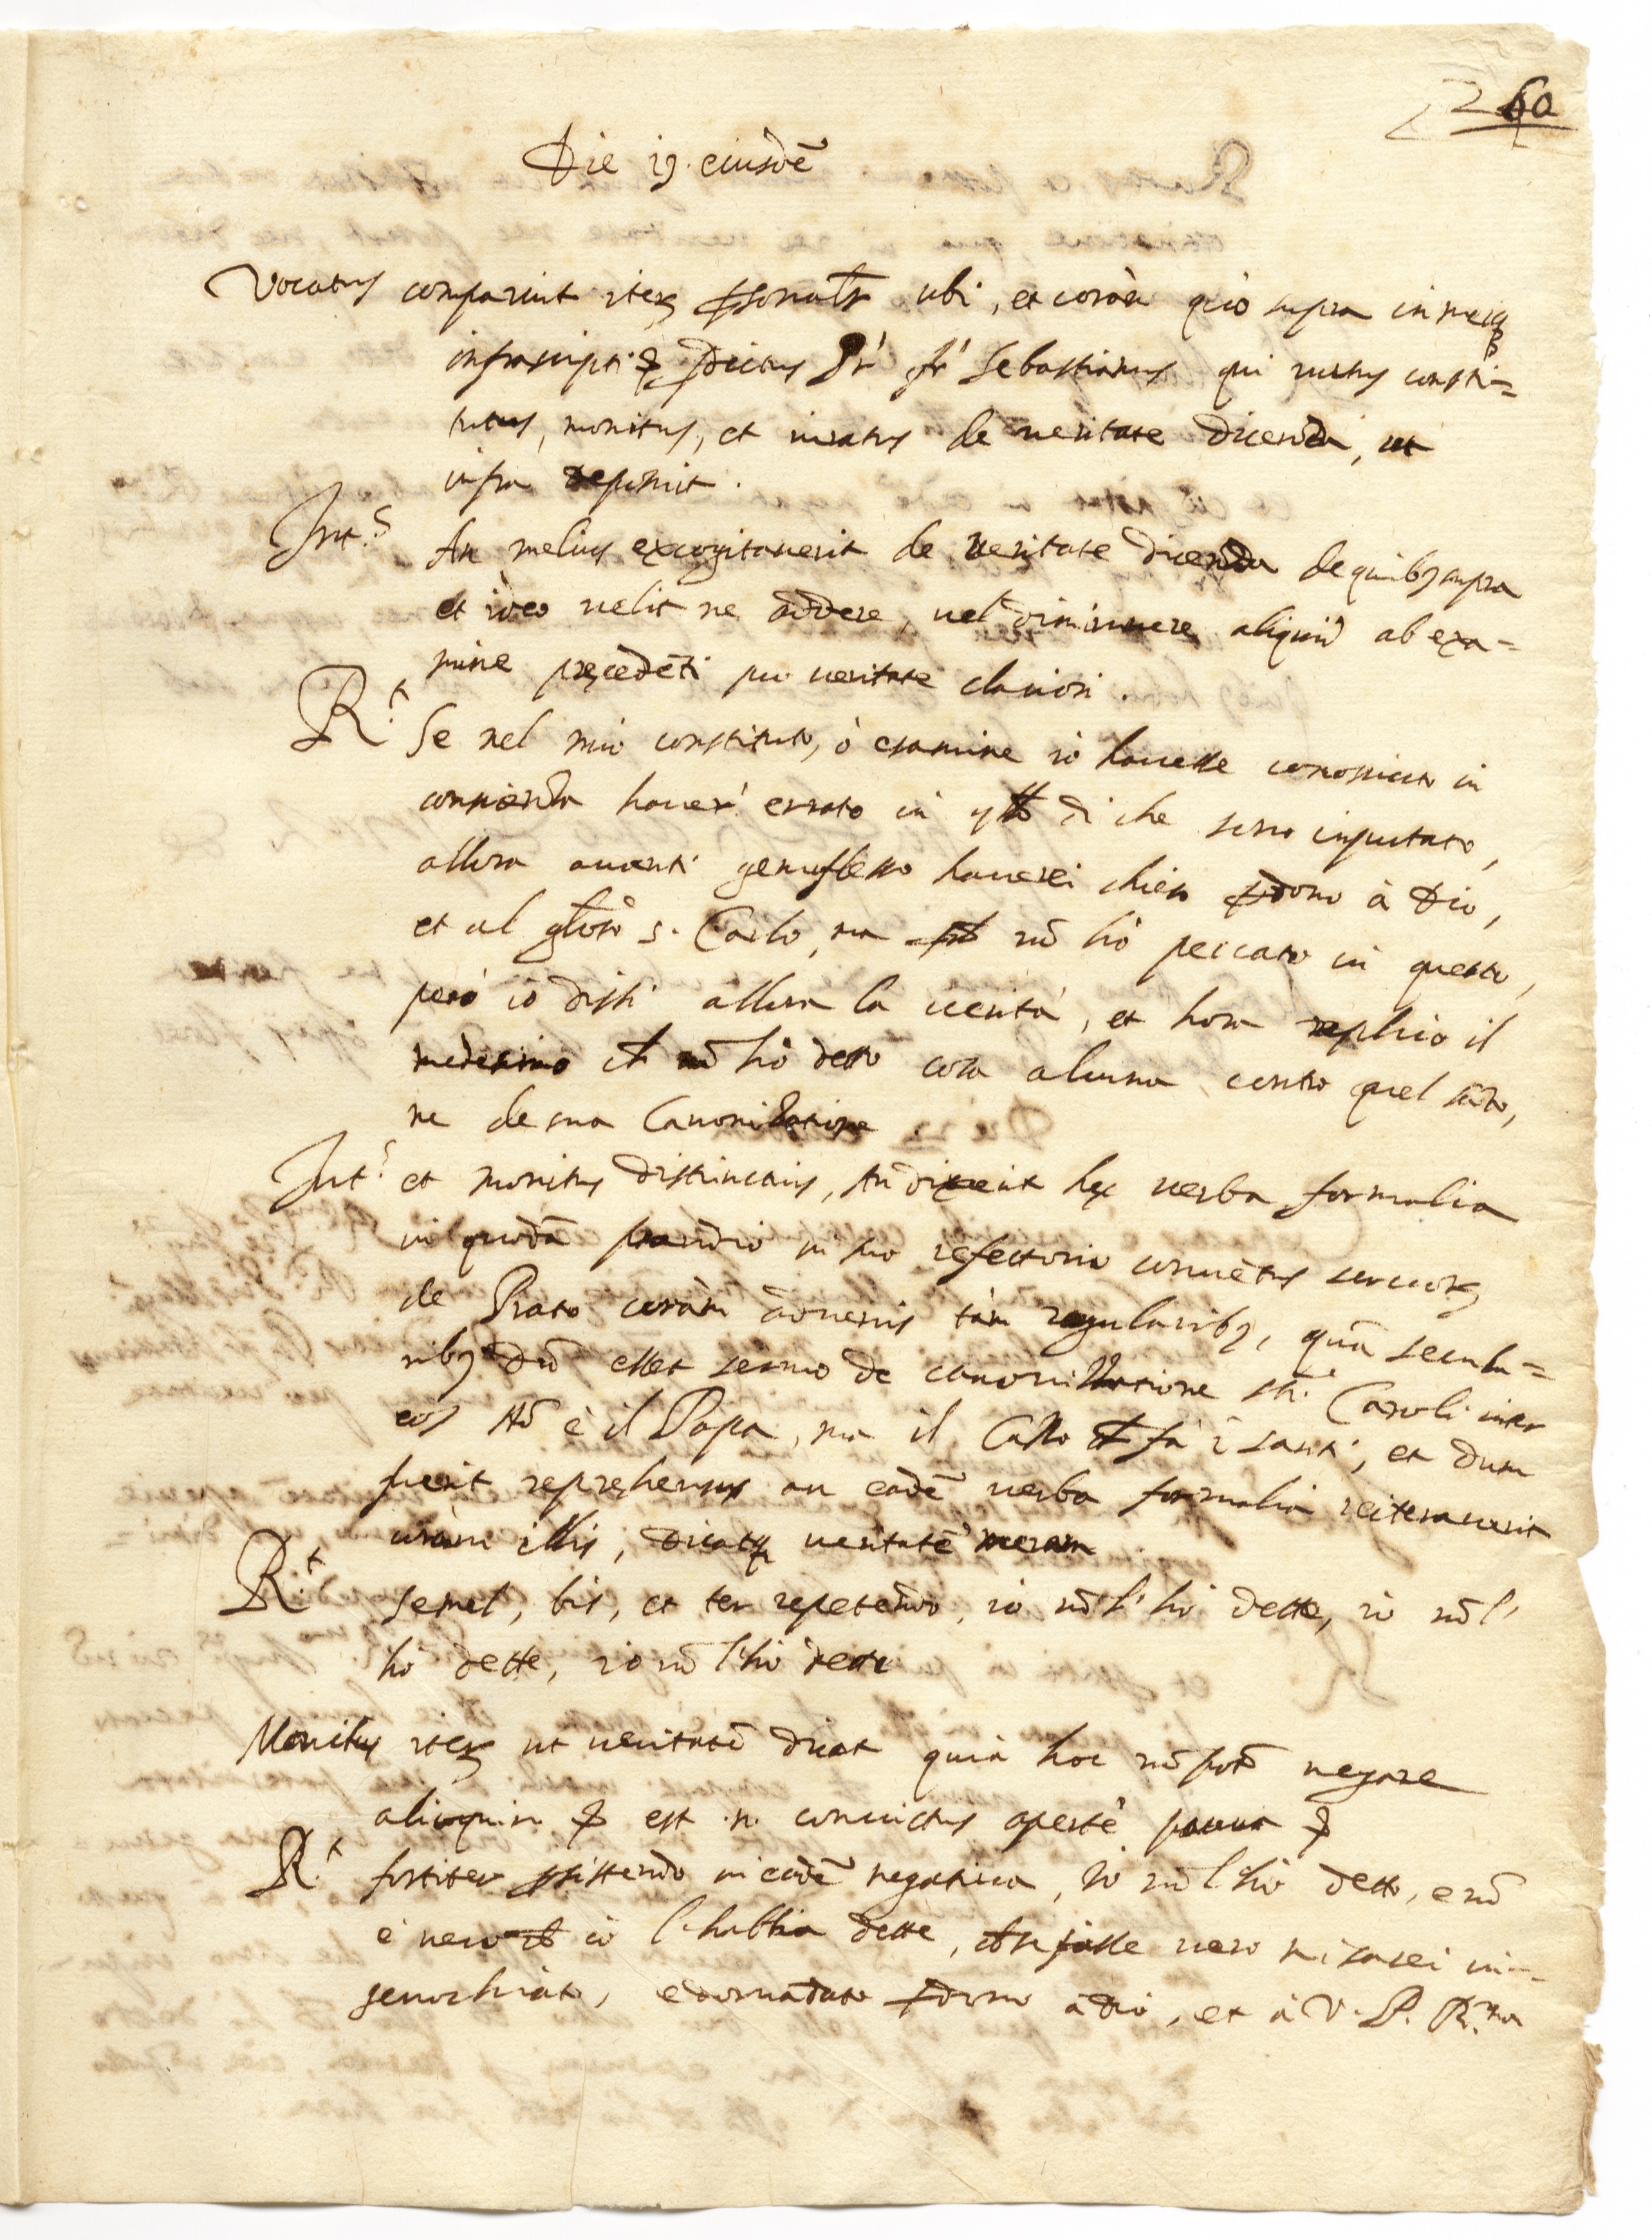 260
Die 19. eiusdē
Vocatus comparuit iterũ psonalr ubi, et coràm quo supra in meiq
infrascripti & pdictus Pr' fr' Sebastianus qui rursus consti=
tutus, monitus, et iuratus de veritate dicenda, ut
infra deposuit.
Int.s An melius excogitaverit de veritate dicenda de quibꝫ supra
et ideo velit ne addere, vel diminuere aliquid ab exa=
mine precedēti pro veritate clariori.
R.t Se nel mio constituto, ò esamine io havesse conosciuto in
conscienza haver' errato in qllo di che sono inputato,
allora avanti genuflesso haverei chiesto pdono à Dio,
et al glōso S. Carlo, ma nō hò peccato in questo,
però io dissi allora la verità, et hora replico il
medesimo ch nō hò detto cosa alcuna contro quel sāto,
ne de sua Canonizatione.
Int.s et monitus distinctius, An dixerit hec verba formalia
in quodā prandio in suo refectorio conuētus servorũ
de Prato coràm advenis tàm regularibꝫ, quā secula=
ribꝫ dū esset sermo de canonizatione sti. Caroli inter
eos Nō è il Papa, ma il Cazzo ch fà i santi, et dum
fuerit reprehensus an eadē verba formalia reiteraverit
coràm illis, dicatq veritatē meram
R.t semel, bis, et ter repetendo, io nō l'hò dette, io nō l'
hò dette, io nō l'hò dette
Monitus iterũ ut veritatē dicat quia hoc nō pōt negare
alioquin & est .n. convictus apertè &
R.t fortiter psistendo in eadē negativa, Io nō l'hò dette, e nō
è vero ch io l'habbia dette, ch se fosse vero mi sarei in=
genochiato, e domādato pdono à Dio, et à V. P. R.ma